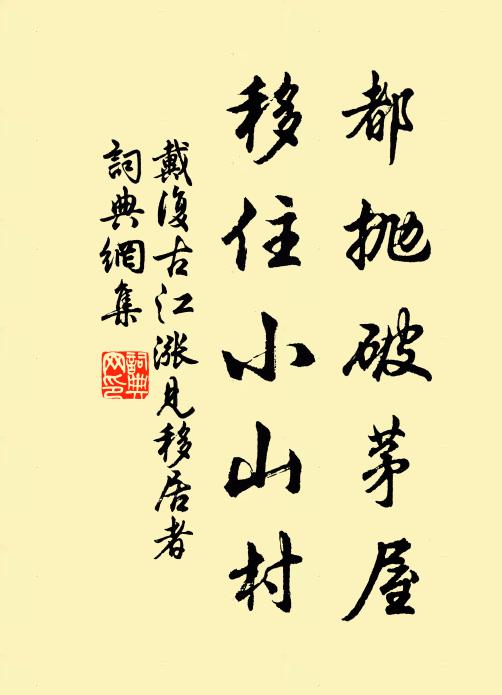 都抛破茅屋
移住小山村
戴復古江漲見移居者
詞典網集
詞典網印